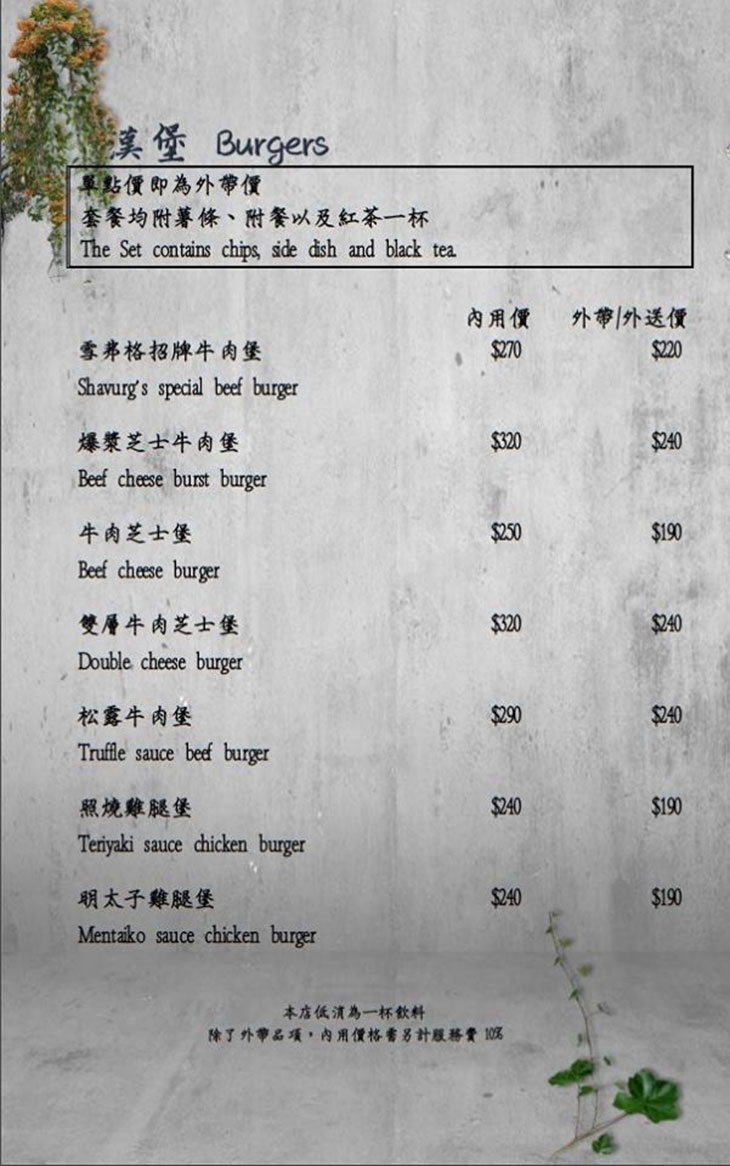 漢堡 Burgers
單點價即為外帶價
套餐均附薯條、附餐以及紅茶一杯
The Set contains chips, side dish and black tea.
內用價 外帶/外送價
雪弗格招牌牛肉堡 $270 $220
Shavurg's special beef burger
爆漿芝士牛肉堡 $320 $240
Beef cheese burst burger
牛肉芝士堡 $250 $190
Beef cheese burger
雙層牛肉芝士堡 $320 $240
Double cheese burger
松露牛肉堡 $290 $240
Truffle sauce beef burger
照燒雞腿堡 $240 $190
Teriyaki sauce chicken burger
明太子雞腿堡 $240 $190
Mentaiko sauce chicken burger
本店低消為一杯飲料
除了外帶品項，內用價格需另計服務費 10%